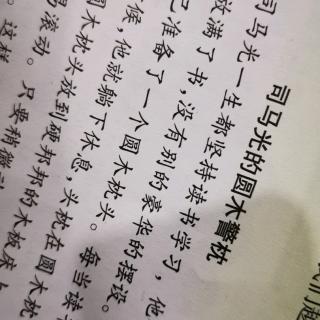 司马光的圆木警枕
司马光一生都坚持读书学习，他
放满了书，没有别的豪华的摆设。
己准备了一个圆木枕头。每当读
候，他就躺下休息，头枕在圆木
圆木枕头放到硬邦邦的木板床上
易滚动。只要稍微
。这样